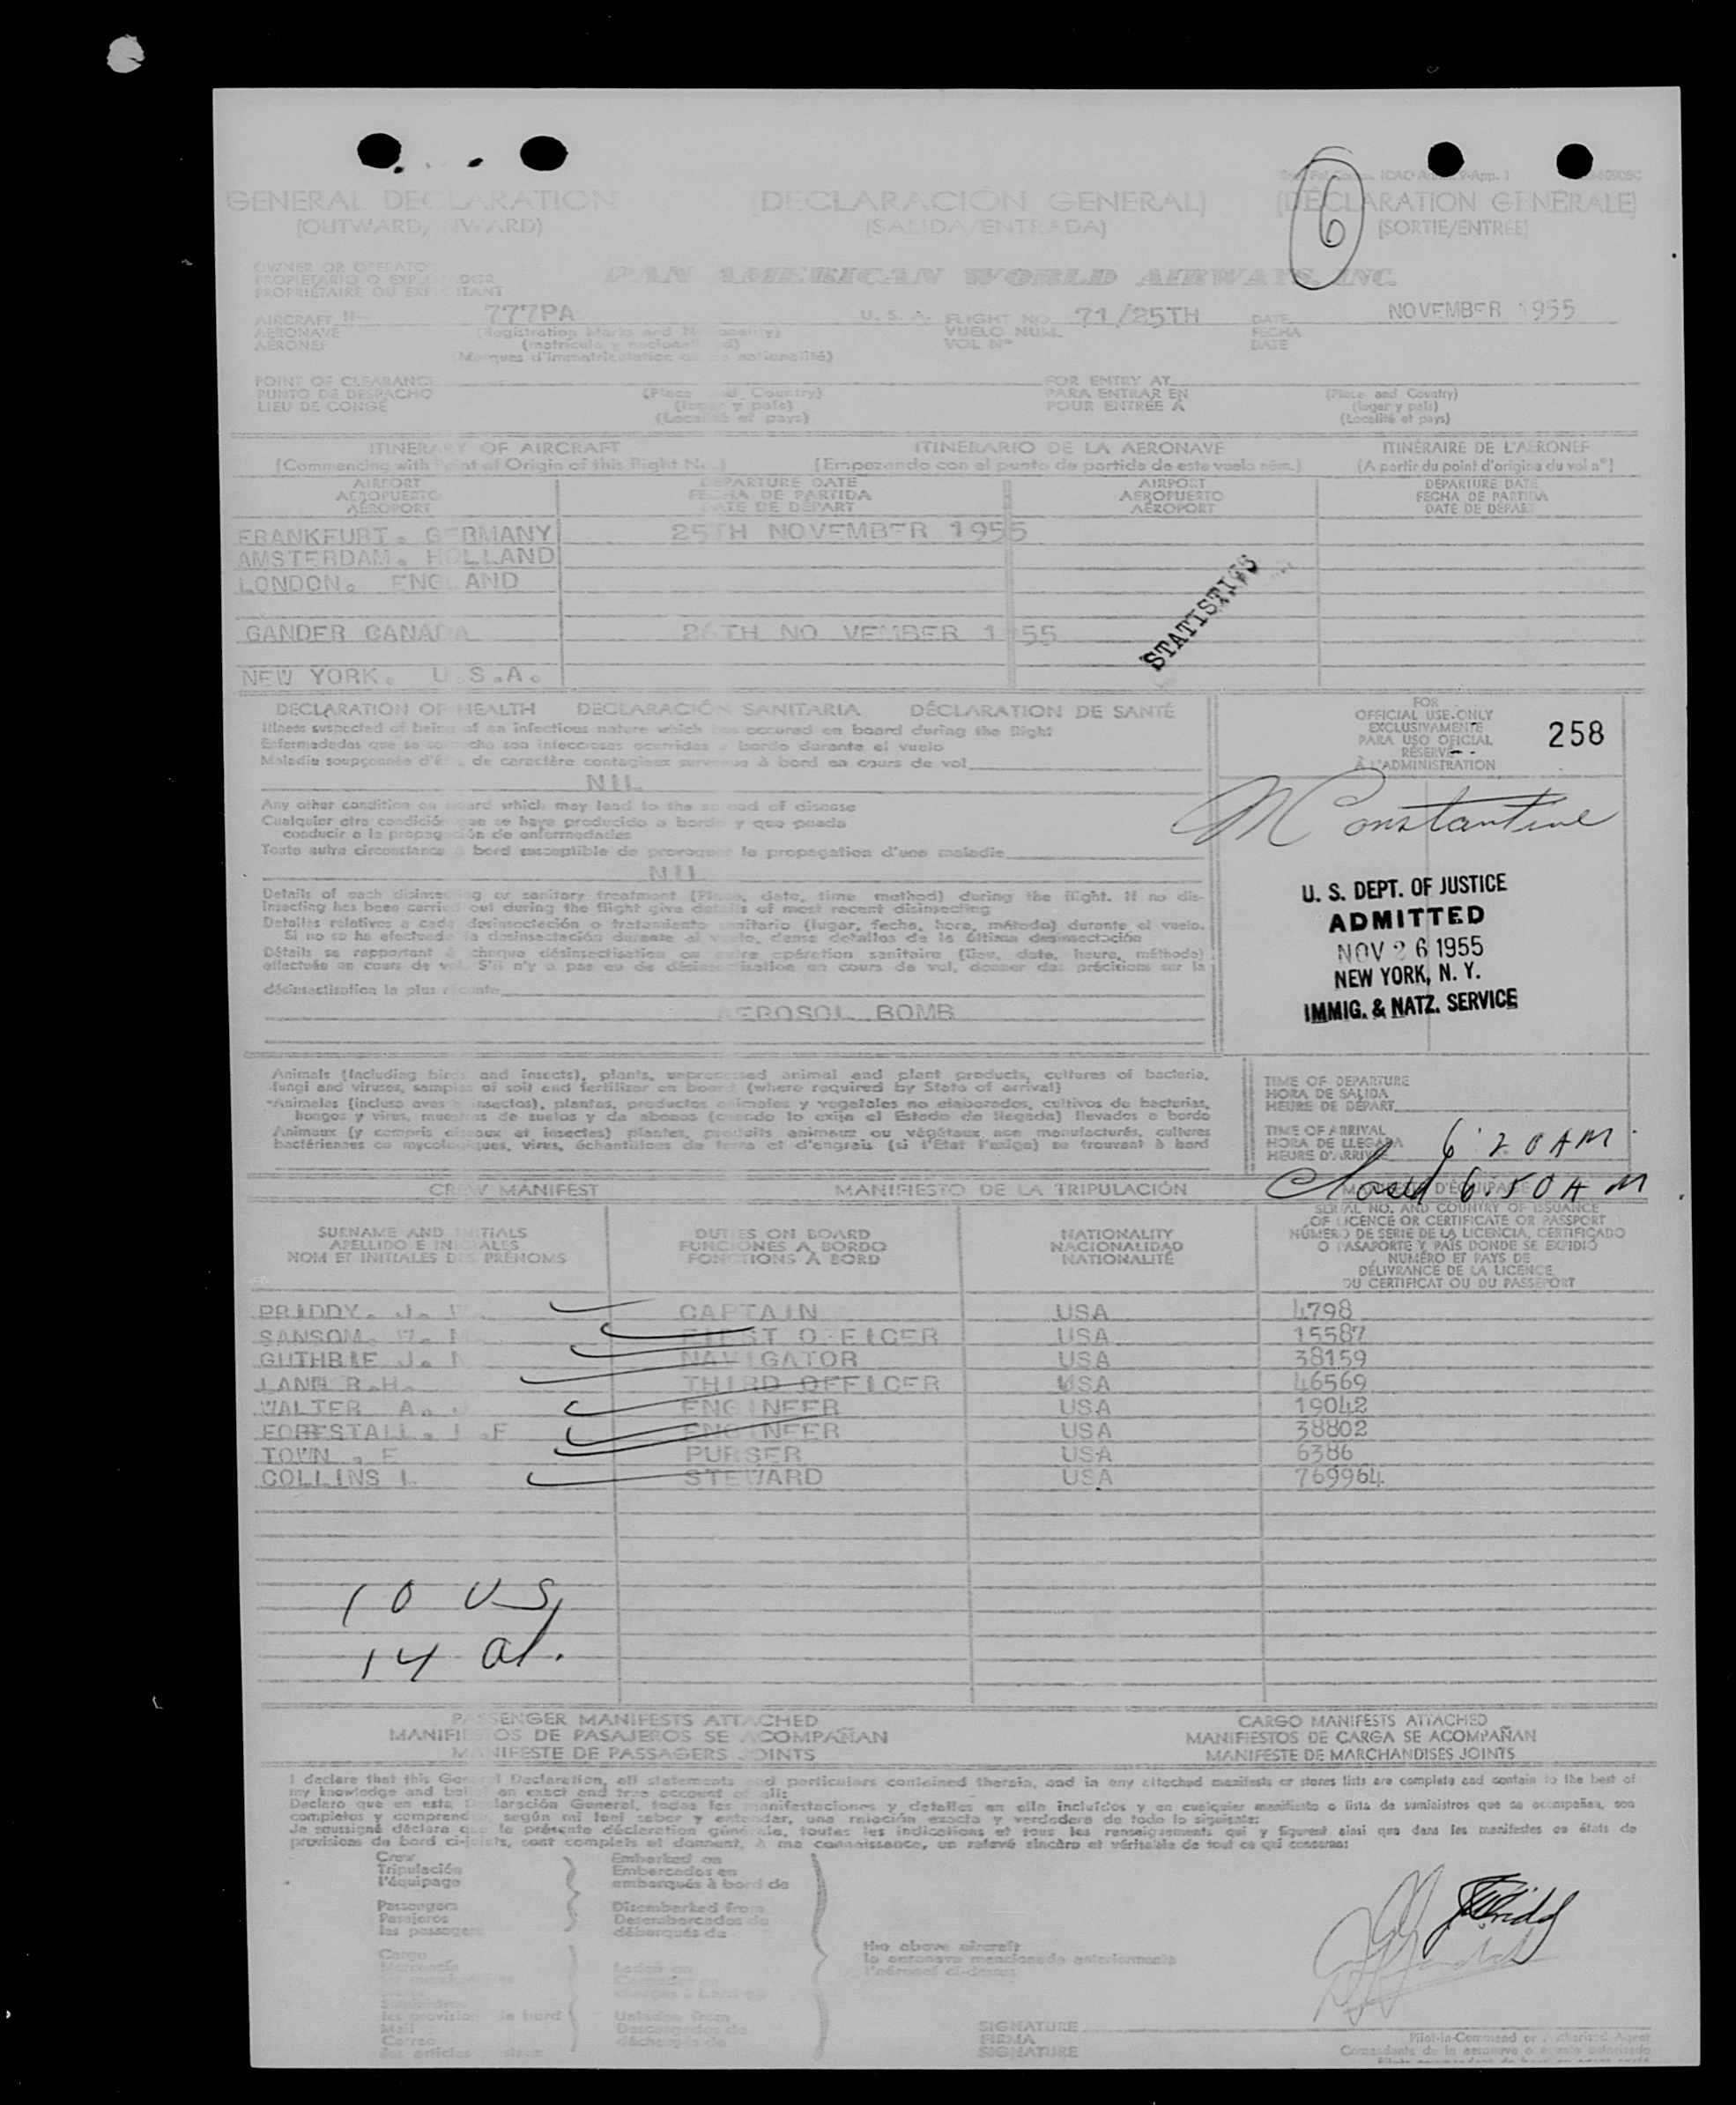 GENERAL DECLARATION (DECLARACIÓN GENERAL) (DÉCLARATION GÉNÉRALE)
(OUTWARD/INWARD) (SALIDA/ENTRADA) (SORTIE/ENTRÉE)
6
OWNER OR OPERATOR
PROPIETARIO O EXPLOTADOR
PROPRIÉTAIRE OU EXPLOITANT
PAN AMERICAN WORLD AIRWAYS, INC.
AIRCRAFT N- 777PA U. S. A. FLIGHT NO. 71/25TH DATE NOVEMBER 1955
AERONAVE (Registration Marks and Nationality) VUELO NUM. FECHA
AÉRONEF (matrícula y nacionalidad) VOL Nº DATE
(Marques d'immatriculation ou de nationalité)
POINT OF CLEARANCE (Place and Country) FOR ENTRY AT (Place and Country)
PUNTO DE DESPACHO (lugar y país) PARA ENTRAR EN (lugar y país)
LIEU DE CONGÉ (Localité et pays) POUR ENTRÉE À (Localité et pays)
ITINERARY OF AIRCRAFT ITINERARIO DE LA AERONAVE ITINÉRAIRE DE L'AÉRONEF
(Commencing with Point of Origin of this flight No.) (Empezando con el punto de partida de este vuelo núm.) (A partir du point d'origine du vol nº)
AIRPORT DEPARTURE DATE AIRPORT DEPARTURE DATE
AEROPUERTO FECHA DE PARTIDA AEROPUERTO FECHA DE PARTIDA
AÉROPORT DATE DE DÉPART AÉROPORT DATE DE DÉPART
FRANKFURT. GERMANY 25TH NOVEMBER 1955
AMSTERDAM. HOLLAND
LONDON. ENGLAND
GANDER CANADA 26TH NO VEMBER 1955
NEW YORK. U.S.A.
STATISTICS
DECLARATION OF HEALTH DECLARACIÓN SANITARIA DÉCLARATION DE SANTÉ
Illness suspected of being of an infectious nature which has occured on board during the flight
Enfermedades que se sospecha son infecciosas ocurridas a bordo durante el vuelo
Maladie soupçonnée d'être de caractère contagieux survenue à bord en cours de vol
NIL
Any other condition on board which may lead to the spread of disease
Cualquier otra condición que se haya producido a bordo y que pueda
conducir a la propagación de enfermedades
Toute autre circonstance à bord susceptible de provoquer la propagation d'une maladie
NIL
Details of each disinsecting or sanitary treatment (Place, date, time method) during the flight. If no dis-
insecting has been carried out during the flight give details of most recent disinsecting
Detalles relativos a cada desinsectación o tratamiento sanitario (lugar, fecha, hora, método) durante el vuelo.
Si no se ha efectuado la desinsectación durante el vuelo, dense detalles de la última desinsectación
Détails se rapportant à chaque désinsectisation ou autre opération sanitaire (lieu, date, heure, méthode)
effectuée en cours de vol. S'il n'y a pas eu de désinsectisation en cours de vol, donner des précisions sur la
désinsectisation la plus récente
AEROSOL BOMB
FOR
OFFICIAL USE ONLY
EXCLUSIVAMENTE
PARA USO OFICIAL
RÉSERVÉ
À L'ADMINISTRATION
258
M Constantine
U. S. DEPT. OF JUSTICE
ADMITTED
NOV 26 1955
NEW YORK, N. Y.
IMMIG. & NATZ. SERVICE
Animals (including birds and insects), plants, unprocessed animal and plant products, cultures of bacteria,
fungi and viruses, samples of soil and fertilizer on board (where required by State of arrival)
Animales (incluso aves e insectos), plantas, productos animales y vegetales no elaborados, cultivos de bacterias,
hongos y virus, muestras de suelos y de abonos (cuando lo exija el Estado de llegada) llevados a bordo
Animaux (y compris oiseaux et insectes) plantes, produits animaux ou végétaux non manufacturés, cultures
bactériennes ou mycologiques, virus, échantillons de terre et d'engrais (si l'État l'exige) se trouvant à bord
TIME OF DEPARTURE
HORA DE SALIDA
HEURE DE DÉPART
TIME OF ARRIVAL
HORA DE LLEGADA
HEURE D'ARRIVÉE
6:20 AM
6:50 AM
CREW MANIFEST MANIFIESTO DE LA TRIPULACIÓN
SURNAME AND INITIALS DUTIES ON BOARD NATIONALITY SERIAL NO. AND COUNTRY OF ISSUANCE
APELLIDO E INICIALES FUNCIONES A BORDO NACIONALIDAD OF LICENCE OR CERTIFICATE OR PASSPORT
NOM ET INITIALES DES PRÉNOMS FONCTIONS À BORD NATIONALITÉ NÚMERO DE SERIE DE LA LICENCIA, CERTIFICADO
O PASAPORTE Y PAÍS DONDE SE EXPIDIÓ
NUMÉRO ET PAYS DE
DÉLIVRANCE DE LA LICENCE
DU CERTIFICAT OU DU PASSEPORT
PRIDDY. J. CAPTAIN USA 4798
SANSOM. FIRST OFFICER USA 15587
GUTHRIE J. NAVIGATOR USA 38159
LANE R.H. THIRD OFFICER USA 46569
WALTER A. ENGINEER USA 19042
FORESTALL. ENGINEER USA 38802
TOWN. E PURSER USA 6386
COLLINS STEWARD USA 769964
10 US
14 al.
PASSENGER MANIFESTS ATTACHED CARGO MANIFESTS ATTACHED
MANIFIESTOS DE PASAJEROS SE ACOMPAÑAN MANIFIESTOS DE CARGA SE ACOMPAÑAN
MANIFESTE DE PASSAGERS JOINTS MANIFESTE DE MARCHANDISES JOINTS
I declare that this General Declaration, all statements and particulars contained therein, and in any attached manifests or stores lists are complete and contain to the best of
my knowledge and belief an exact and true account of all:
Declaro que en esta Declaración General, todas las manifestaciones y detalles en ella incluídos y en cualquier manifiesto o lista de suministros que se acompañen, son
completos y comprenden, según mi leal saber y entender, una relación exacta y verdadera de todo lo siguiente:
Je soussigné déclare que la présente déclaration générale, toutes les indications et tous les renseignements qui y figurent ainsi que dans les manifestes ou états de
provisions de bord ci-joints, sont complets et donnent, à ma connaissance, un relevé sincère et véritable de tout ce qui concerne:
Crew Embarked on
Tripulación Embarcados en
l'équipage embarqués à bord de
Passengers Disembarked from
Pasajeros Desembarcados de
les passagers débarqués de
the above aircraft
la aeronave mencionada anteriormente
l'aéronef ci-dessus
Cargo
Mail
Correo
SIGNATURE
FIRMA
SIGNATURE
Pilot-in-Command or Authorized Agent